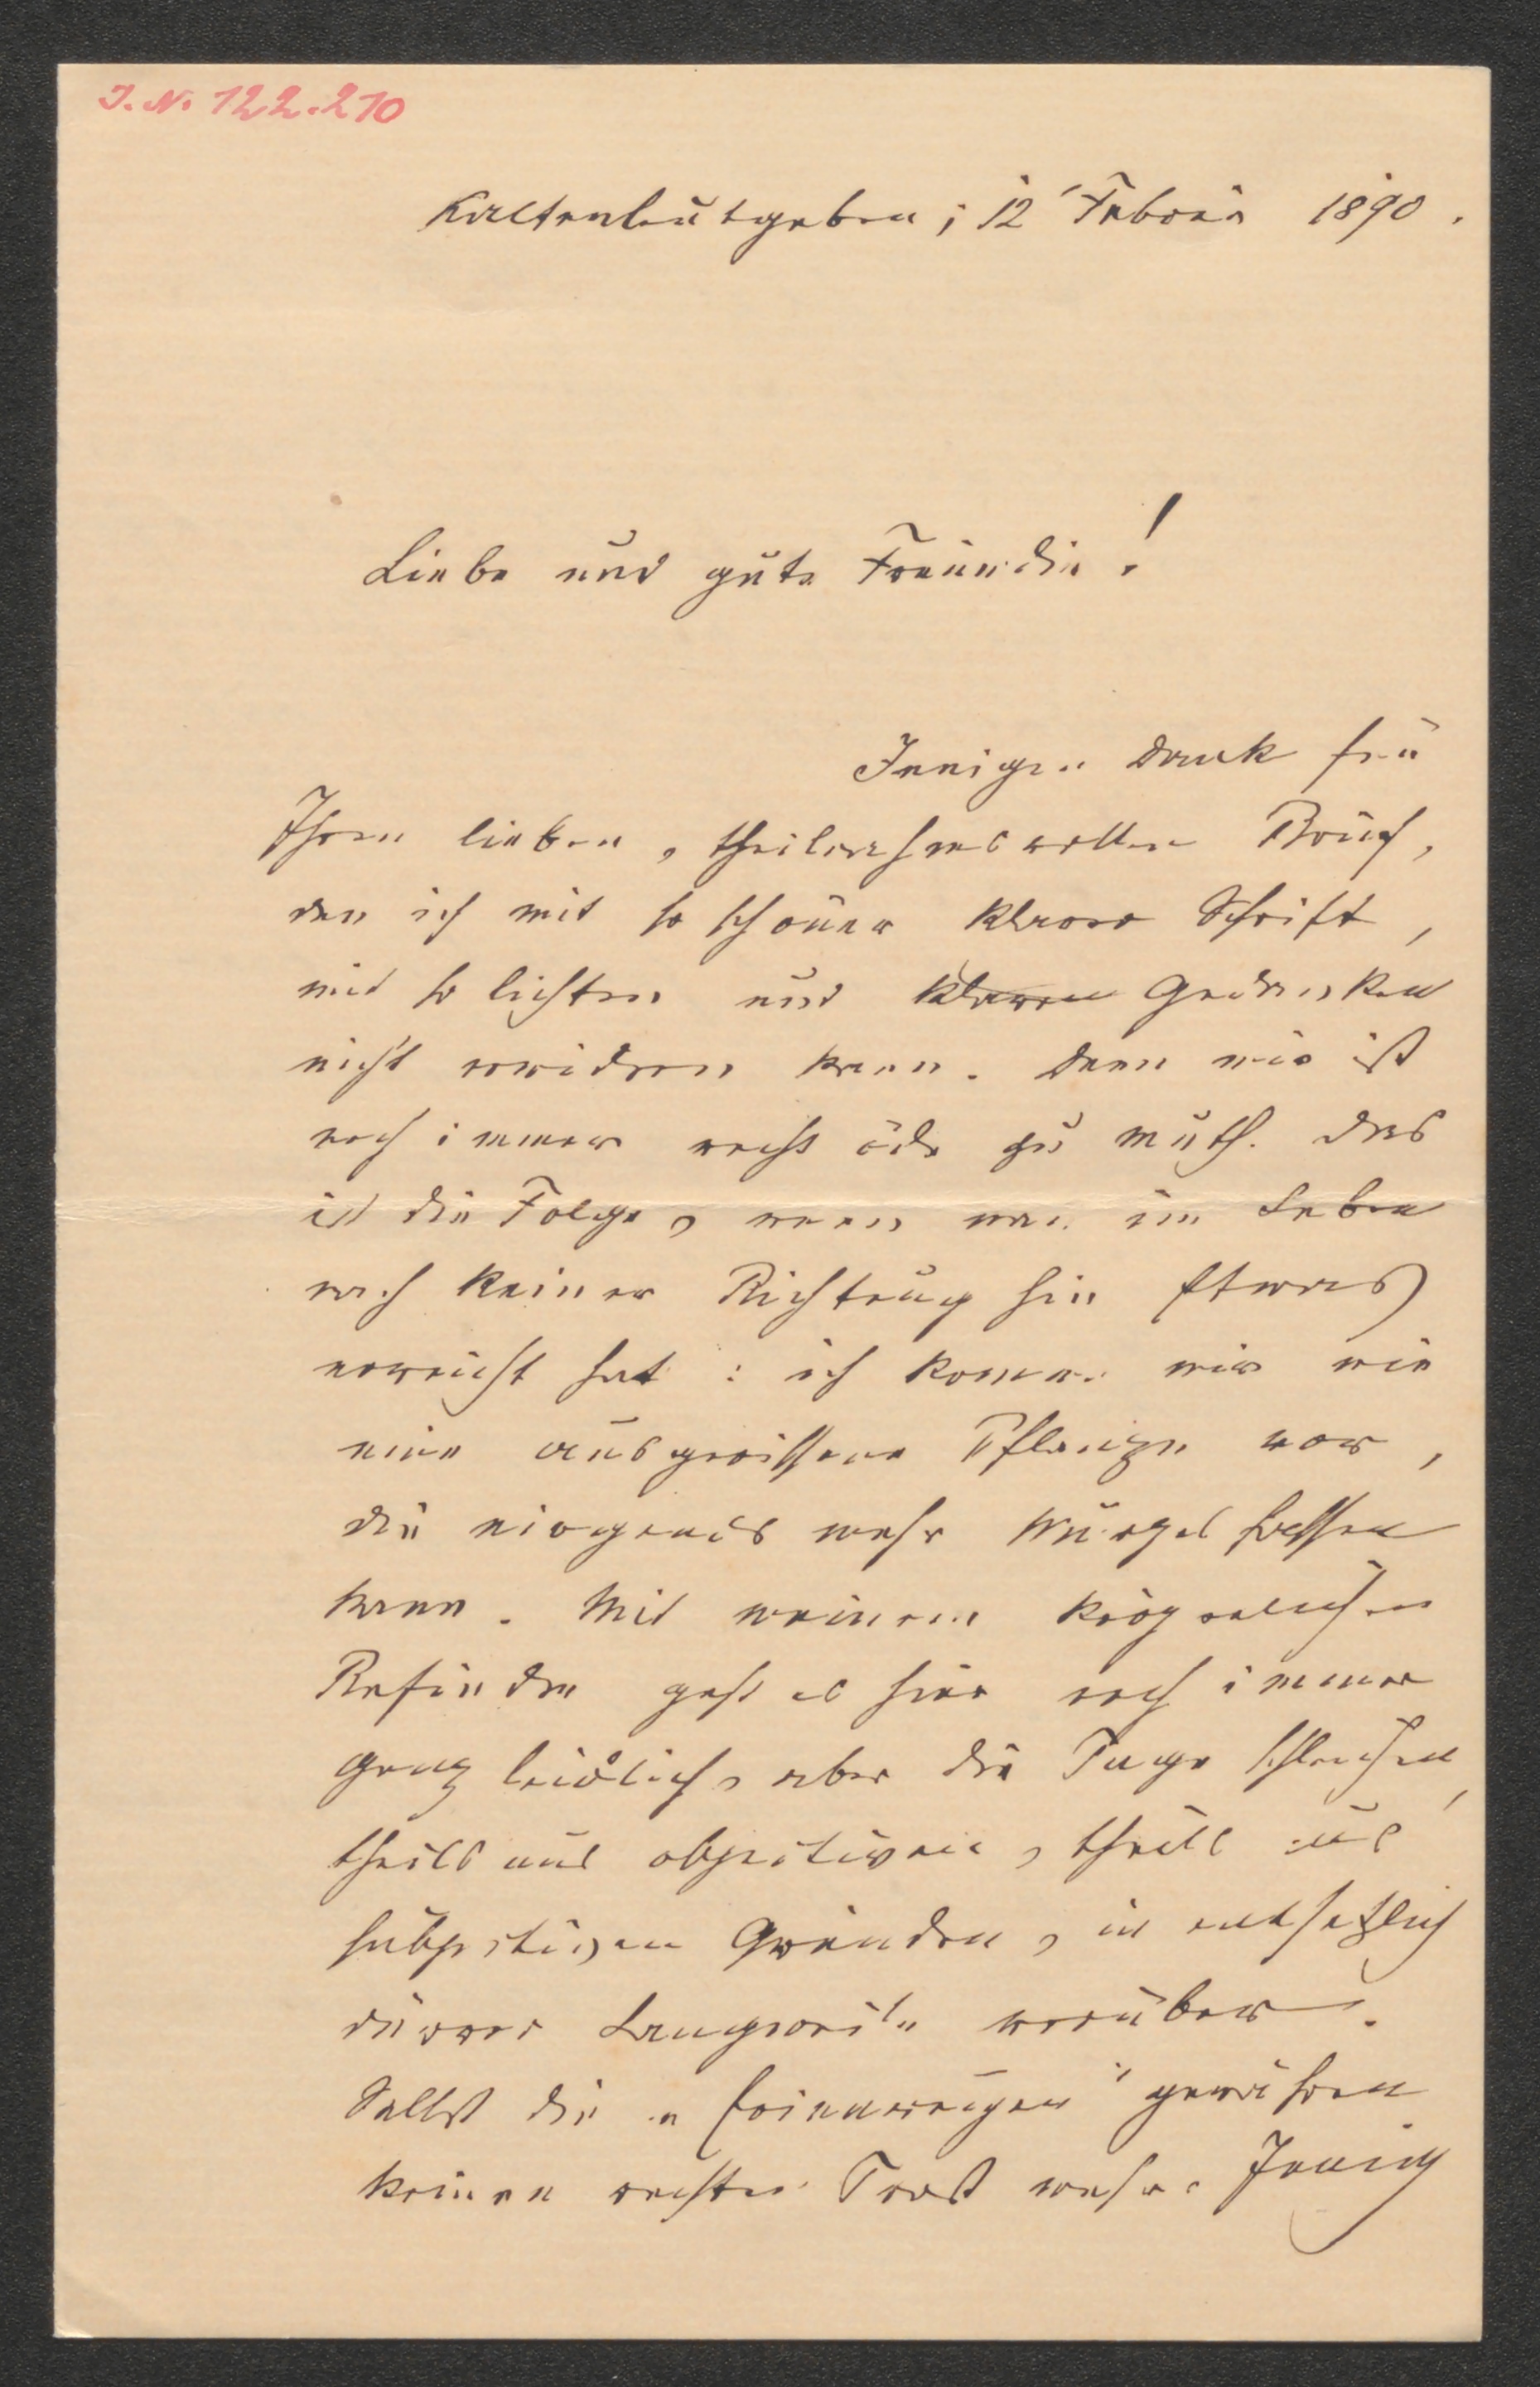 I. N. 122.210
Kaltenleutgeben, 12 Februar 1890.
Liebe und gute Freundin!
Innigen Dank für
Ihren lieben, theilnahmsvollen Brief,
den ich mit so schöner klarer Schrift,
mit so lichten und klaren Gedanken
nicht erwidern kann. Denn mir ist
noch immer recht öde zu muth. Das
ist die Folge, wenn man im Leben
nach keiner Richtung hin Etwas
erreicht hat: ich komme mir wie
eine ausgerissene Pflanze vor,
die nirgends mehr Wurzel fassen
kann. Mit meinem körperlichen
Befinden geht es hier noch immer
ganz leidlich, aber die Tage schleichen,
theils aus objectiven, theils aus
subjectiven Gründen, in entsetzlich
dürrer Langweile vorüber.
Selbst die „Erinnerungen" gewähren
keinen rechten Trost mehr. Innig